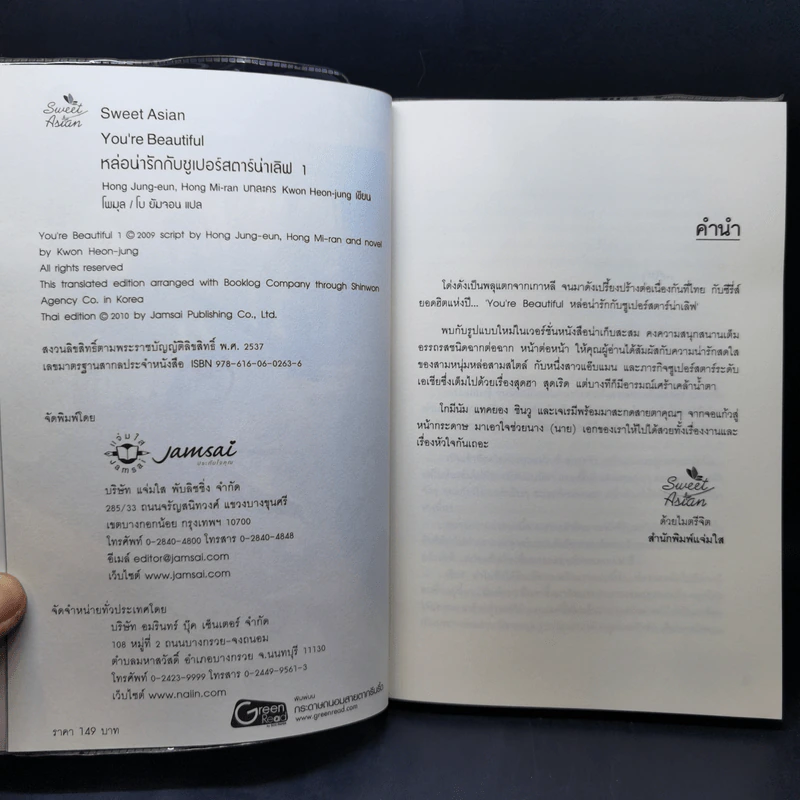 Sweet Asian
Sweet Asian
You're Beautiful
หล่อน่ารักกับซูเปอร์สตาร์น่าเลิฟ 1
Hong Jung-eun, Hong Mi-ran บทละคร Kwon Heon-jung เขียน
โพมุล / โบ ยัมจอน แปล
You're Beautiful 1 © 2009 script by Hong Jung-eun, Hong Mi-ran and novel
by Kwon Heon-jung
All rights reserved
This translated edition arranged with Booklog Company through Shinwon
Agency Co. in Korea
Thai edition © 2010 by Jamsai Publishing Co., Ltd.
สงวนลิขสิทธิ์ตามพระราชบัญญัติลิขสิทธิ์ พ.ศ. 2537
เลขมาตรฐานสากลประจำหนังสือ ISBN 978-616-06-0263-6
จัดพิมพ์โดย
แจ่มใส
Jamsai
jamsai
บริษัท แจ่มใส พับลิชชิ่ง จำกัด
285/33 ถนนจรัญสนิทวงศ์ แขวงบางขุนศรี
เขตบางกอกน้อย กรุงเทพฯ 10700
โทรศัพท์ 0-2840-4800 โทรสาร 0-2840-4848
อีเมล์ editor@jamsai.com
เว็บไซต์ www.jamsai.com
จัดจำหน่ายทั่วประเทศโดย
บริษัท อมรินทร์ บุ๊ค เซ็นเตอร์ จำกัด
108 หมู่ที่ 2 ถนนบางกรวย-จงถนอม
ตำบลมหาสวัสดิ์ อำเภอบางกรวย จ.นนทบุรี 11130
โทรศัพท์ 0-2423-9999 โทรสาร 0-2449-9561-3
เว็บไซต์ www.naiin.com
Green Read
พิมพ์บน
กระดาษถนอมสายตากรีนรี้ด
www.greenread.com
ราคา 149 บาท
คำนำ
โด่งดังเป็นพลุแตกจากเกาหลี จนมาดังเปรี้ยงปร้างต่อเนื่องกันที่ไทย กับซีรี่ส์
ยอดฮิตแห่งปี... 'You're Beautiful หล่อน่ารักกับซูเปอร์สตาร์น่าเลิฟ'
พบกับรูปแบบใหม่ในเวอร์ชั่นหนังสือน่าเก็บสะสม คงความสนุกสนานเต็ม
อรรถรสชนิดฉากต่อฉาก หน้าต่อหน้า ให้คุณผู้อ่านได้สัมผัสกับความน่ารักสดใส
ของสามหนุ่มหล่อสามสไตล์ กับหนึ่งสาวแอ๊บแมน และภารกิจซูเปอร์สตาร์ระดับ
เอเชียซึ่งเต็มไปด้วยเรื่องสุดฮา สุดเริด แต่บางทีก็มีอารมณ์เศร้าเคล้าน้ำตา
โกมีนัม แทคยอง ชินวู และเจเรมีพร้อมมาสะกดสายตาคุณๆ จากจอแก้วสู่
หน้ากระดาษ มาเอาใจช่วยนาง (นาย) เอกของเราให้ไปได้สวยทั้งเรื่องงานและ
เรื่องหัวใจกันเถอะ
Sweet Asian
ด้วยไมตรีจิต
สำนักพิมพ์แจ่มใส